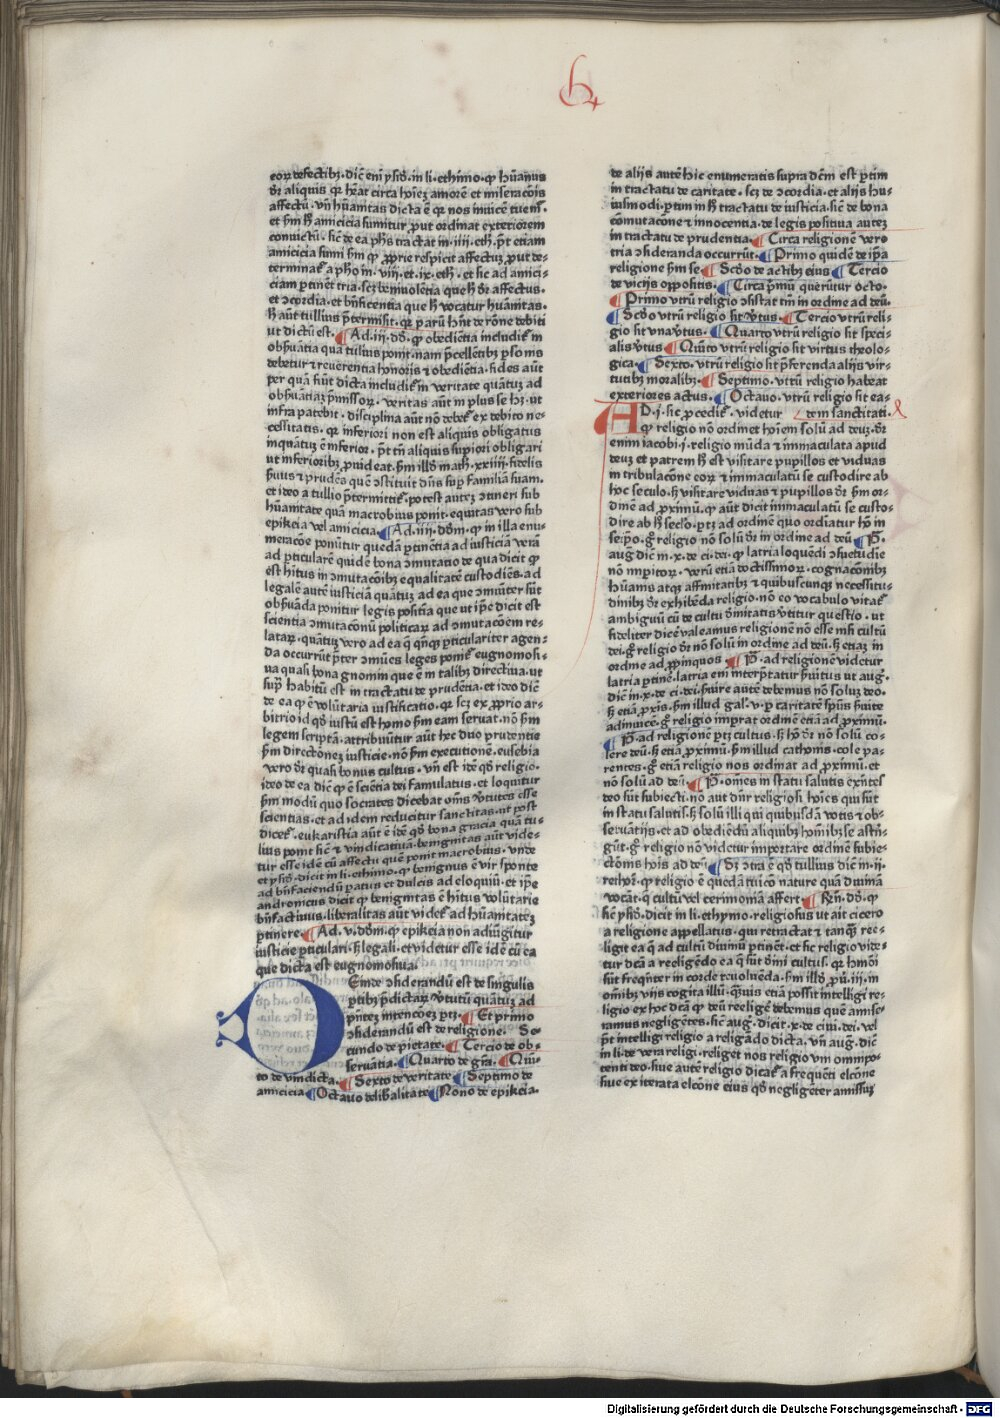 eoꝝ defectibꝫ. dic̄ em̄ ysid̄. in li. ethimo. ꝙ hūanus
dr̄ aliquis qr̄ hēat circa hoīeꝫ amorē et miseracōis
affectū. vn̄ hūanitas dicta ē qr̄ nos inuicē tuem̄.
et ẜm H̄ amicicia sumitur ꝓut ordinat exteriorem
conuictū. sic̄ de ea ph̄s tractat in .iiij. eth. pt̄ etiam
amicicia sumi ẜm ꝙ ꝓprie respicit affectuꝫ ꝓut de⸗
terminat̄ a pho in. viij. et. ix. eth. et sic ad amici⸗
ciam ptinēt tria. scꝫ beniuolētia que H̄ dr̄ affectus.
et ɔcordia. et bn̄ficentia que H̄ vocatur hūanitas.
H̄ aūt tullius p̄termisit. qr̄ parū hn̄t de rōne debiti
ut dictū est. Ad .iij. dd̄. ꝙ obediētia includit̄ in
obẜuātia quā tulius ponit. nam p̄cellētibꝫ ꝑsonis
debetur ⁊ reuerentia honoris ⁊ obediētia. fides aūt
per quā fiūt dicta includit̄ in veritate quātuꝫ ad
obẜuātiaꝫ p̄missoꝝ. veritas aūt in plus se hꝫ. ut
infra patebit. disciplina aūt nō debet̄ ex debito ne⸗
cessitatis. qr̄ inferiori non est aliquis obligatus
inquātuꝫ ē inferior. pt̄ tn̄ aliquis supiori obligari
ut inferioribꝫ ꝓuideat. ẜm illd̄ math̄. xxiiij. fidelis
ẜuus ⁊ prudēs quē ɔstituit dn̄s sup̄ familiā suam.
et ideo a tullio p̄termittit̄. potest auteꝫ ɔtineri sub
hūanitate quā macrobius ponit. equitas vero sub
epikeia vel amicicia. Ad .iiij. dd̄m. ꝙ in illa enu⸗
meracōe ponūtur quedā ptinētia ad iusticiā verā
ad pticularē quidē bona ɔmutatio de qua dicit ꝙ
est hitus in ɔmutacōibꝫ equalitatē custodiēs. ad
legalē autē iusticiā quātuꝫ ad ea que ɔmuniter sūt
obẜuāda ponitur legis positiua que ut ip̄e dicit est
scientia ɔmutaconū politicaꝝ ad ɔmutacōem re⸗
lataꝝ. quātuꝫ vero ad ea q̄ qn̄qꝫ pticulariter agen⸗
da occurrūt pter ɔmūes leges ponit̄ eugnomosi⸗
na quasi bona gnomin que ē in talibꝫ directiua. ut
sup̄ habitū est in tractatu de prudētia. et ideo dic̄
de ea ꝙ ē volūtaria iustificatio. qr̄ scꝫ ex ꝓprio ar⸗
bitrio id qd̄ iustū est homo ẜm eam seruat. nō ẜm
legem scriptā. attribuūtur aūt hec duo prudentie
ẜm directioneꝫ iusticie. nō ẜm executionē. eusebia
vero dr̄ quasi bonus cultus. vn̄ est idē qd̄ religio.
ideo de ea dic̄ ꝙ ē sciētia dei famulatus. et loquitur
ẜm modū quo socrates dicebat om̄s v̓tutes esse
scientias. et ad idem reducitur sanctitas. ut post
dicet̄. eukaristia aūt ē idē qd̄ bona gracia quā tu⸗
lius ponit sic̄ ⁊ vindicatiuā. benignitas aūt vide⸗
tur esse idē cū affectu quē ponit macrobius. vnde
et ysid̄. dicit in li. ethimo. ꝙ benignus ē vir sponte
ad bn̄faciendū patus et dulcis ad eloquiū. et ip̄e
andronicus dicit ꝙ benignitas ē hitus volūtarie
bn̄factiuus. liberalitas aūt videt̄ ad hūanitateꝫ
ptinere. Ad. v. dd̄m. ꝙ epikeia non adiūgitur
iusticie pticulari. s̄ legali. et videtur esse idē cū ea
que dicta est eugnomosina.
DEinde ɔsiderandū est de singulis
ptibꝫ p̄dictaꝝ v̓tutū quātuꝫ ad
p̄ntez intencōeꝫ ptꝫ. Et primo
ɔsiderandū est de religione. Se⸗
cundo de pietate. Tercio de ob⸗
seruātia. Quarto de gr̄a. Quī⸗
to de vindicta. Sexto de veritate Septimo de
amicicia Octauo de lib̄alitate Nono de epikeia.
de alijs autē hic enumeratis supra dc̄m est ptim
in tractatu de caritate. scꝫ de ɔcordia. et alijs hu⸗
iusmodi. ptim in H̄ tractatu de iusticia. sic̄ de bona
cōmutacōe ⁊ innocentia. de legis positiua auteꝫ
in tractatu de prudentia. Circa religionē vero
tria ɔsideranda occurrūt. Primo quidē de ip̄a
religione ẜm se Scd̄o de actibꝫ eius Tercio
de vicijs oppositis. Circa p̄mū querūtur octo.
Primo vtrū religio ɔsistat tm̄ in ordine ad deū.
Scd̄o vtrū religio sit v̓tus. Tercio vtrū reli⸗
gio sit una v̓tus. Quarto vtrū religio sit speci⸗
alis v̓tus Quīto vtrū religio sit virtus theolo⸗
gica. Sexto. vtrū religio sit p̄ferenda alijs vir⸗
tutibꝫ moralibꝫ. Septimo. vtrū religio habeat
exteriores actus. Octauo. vtrū religio sit ea⸗
AD .j. sic ꝓcedit̄. videtur dem sanctitati.
ꝙ religio nō ordinet hoīem solū ad deuꝫ. dr̄
enim iacobi .j. religio mūda ⁊ immaculata apud
deuꝫ et patrem H̄ est visitare pupillos et viduas
in tribulacōne eoꝝ ⁊ immaculatū se custodire ab
hoc seculo. s̄ visitare viduas ⁊ pupillos dr̄ ẜm or⸗
dinē ad ꝓximū. ꝙ aūt dicit immaculatū se custo⸗
dire ab H̄ secl̄o. ptꝫ ad ordinē quo ordiatur hō in
seip̄o. g̊ religio nō solū dr̄ in ordine ad deū P̄.
aug dic̄ in. x. de ci. dei. ꝙ latria loquēdi ɔsuetudie
nō impitoꝝ. verū etiā doctissimoꝝ. cognacōnibꝫ
hūanis atqꝫ affinitatibꝫ ⁊ quibuscunqꝫ necessitu⸗
dinibꝫ dr̄ exhibēda religio. nō eo vocabulo vitat̄
ambiguū cū de cultu dinitatis v̓titur questio. ut
fideliter dicē valeamus religionē nō esse nisi cultū
dei. g̊ religio dr̄ nō solū in ordine ad deū. s̄ etiaꝫ in
ordine ad ꝓpinquos P̄. ad religionē videtur
latria ptinē. latria em̄ interp̄tatur ẜuitus ut aug.
dic̄ in. x. de ci. dei. ẜuire autē debemus nō soluꝫ deo.
s̄ etiā ꝓxīs. ẜm illud gal̄. v. p caritatē spūs ẜuite
adinuicē. g̊ religio imp̄rat ordinē etiā ad ꝓximū.
P̄. ad religionē ptꝫ cultus. s̄ hō dr̄ nō solū co⸗
lere deū. s̄ etiā ꝓximū. ẜm illud cathonis. cole pa⸗
rentes. g̊ etiā religio nos ordinat ad ꝓximū. et
nō solū ad deū P̄. om̄es in statu salutis exn̄tes
deo sūt subiecti. nō aut dn̄r religiosi hoīes qui sūt
in statu salutis. s̄ solū illi qui quibusdā votis ⁊ ob⸗
seruātijs. et ad obediēdū aliquibꝫ hoībꝫ se astrī⸗
gūt. g̊ religio nō videtur importare ordinē subie⸗
ctōnis hoīs ad deū Sꝫ ɔtra ē qd̄ tullius dic̄ in .ij.
rethoꝝ. ꝙ religio ē quedā suicō nature quā diuinā
vocāt. q̄ cultū vel cerimoniā affert Rn̄. dd̄. ꝙ
sic̄ ysid̄. dicit in li. ethymo. religiosus ut ait cicero
a religione appellatus. qui retractat ⁊ tanqꝫ ree⸗
ligit ea q̄ ad cultū diuinū ptinēt. et sic religio vide⸗
tur dc̄a a reeligēdo ea q̄ sūt diuini cultus. qr̄ hmōi
sūt freqn̄ter in corde reuoluēda. ẜm illd̄ ꝓū. iij. in
om̄ibꝫ vijs cogita illū. qͣuis etiā possit intelligi re⸗
ligio ex hoc dc̄a ꝙ deū reeligē debemus quē amise⸗
ramus negligētes. sic̄ aug. dicit. x. de ciui. dei. vel
pt̄ intelligi religio a religādo dicta. vn̄ aug. dic̄
in li. de vera religi. religet nos religio vni omnipo⸗
tenti deo. siue autē religio dicat̄ a frequēti elcōne
siue ex iterata elcōne eius qd̄ negligēter amissuꝫ
Digitalisierung gefördert durch die Deutsche Forschungsgemeinschaft - DFG